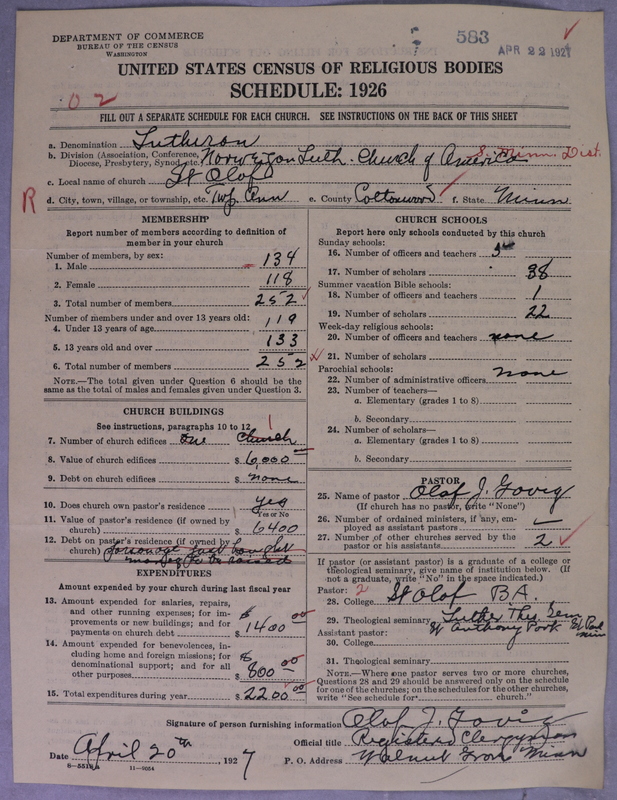 DEPARTMENT OF COMMERCE
BUREAU OF THE CENSUS
WASHINGTON
583
APR 22 1927
UNITED STATES CENSUS OF RELIGIOUS BODIES
SCHEDULE: 1926
02
FILL OUT A SEPARATE SCHEDULE FOR EACH CHURCH. SEE INSTRUCTIONS ON THE BACK OF THIS SHEET
a. Denomination Lutheran
b. Division (Association, Conference, Diocese, Presbytery, Synod, etc.) Norwegian Luth. Church of America S. Minn. Dist.
c. Local name of church St Olof
R
d. City, town, village, or township, etc. Twp Ann e. County Cottonwood f. State Minn
MEMBERSHIP
Report number of members according to definition of
member in your church
Number of members, by sex:
1. Male 134
2. Female 118
3. Total number of members 252
Number of members under and over 13 years old:
4. Under 13 years of age 119
5. 13 years old and over 133
6. Total number of members 252
NOTE.—The total given under Question 6 should be the
same as the total of males and females given under Question 3.
CHURCH BUILDINGS
See instructions, paragraphs 10 to 12
1
7. Number of church edifices one church
8. Value of church edifices $ 6,000
9. Debt on church edifices $ none
10. Does church own pastor's residence? yes
Yes or No
11. Value of pastor's residence (if owned by
church) $ 6400
12. Debt on pastor's residence (if owned by
church) Parsonage just bought
money to be raised
EXPENDITURES
Amount expended by your church during last fiscal year
13. Amount expended for salaries, repairs,
and other running expenses; for im-
provements or new buildings; and for
payments on church debt $ 1400 00
14. Amount expended for benevolences, in-
cluding home and foreign missions; for
denominational support; and for all
other purposes $ 800 00
15. Total expenditures during year $ 2200 00
CHURCH SCHOOLS
Report here only schools conducted by this church
Sunday schools:
16. Number of officers and teachers
17. Number of scholars 38
Summer vacation Bible schools:
18. Number of officers and teachers 1
19. Number of scholars 22
Week-day religious schools:
20. Number of officers and teachers none
21. Number of scholars
Parochial schools:
22. Number of administrative officers none
23. Number of teachers—
a. Elementary (grades 1 to 8)
b. Secondary
24. Number of scholars—
a. Elementary (grades 1 to 8)
b. Secondary
PASTOR
25. Name of pastor Olof J. Govig
(If church has no pastor, write "None")
26. Number of ordained ministers, if any, em-
ployed as assistant pastors —
27. Number of other churches served by the
pastor or his assistants 2
If pastor (or assistant pastor) is a graduate of a college or
theological seminary, give name of institution below. (If
not a graduate, write "No" in the space indicated.)
Pastor: 2
28. College St Olof BA.
29. Theological seminary Luther The. Sem
St Anthony Park St Paul
Minn
Assistant pastor:
30. College
31. Theological seminary
NOTE.—Where one pastor serves two or more churches,
Questions 28 and 29 should be answered only on the schedule
for one of the churches; on the schedules for the other churches,
write "See schedule for church."
Signature of person furnishing information Olof J. Govig
Official title Registered Clergyman
Date April 20th, 1927 P. O. Address Walnut Grove Minn
6—5519a 11—9054